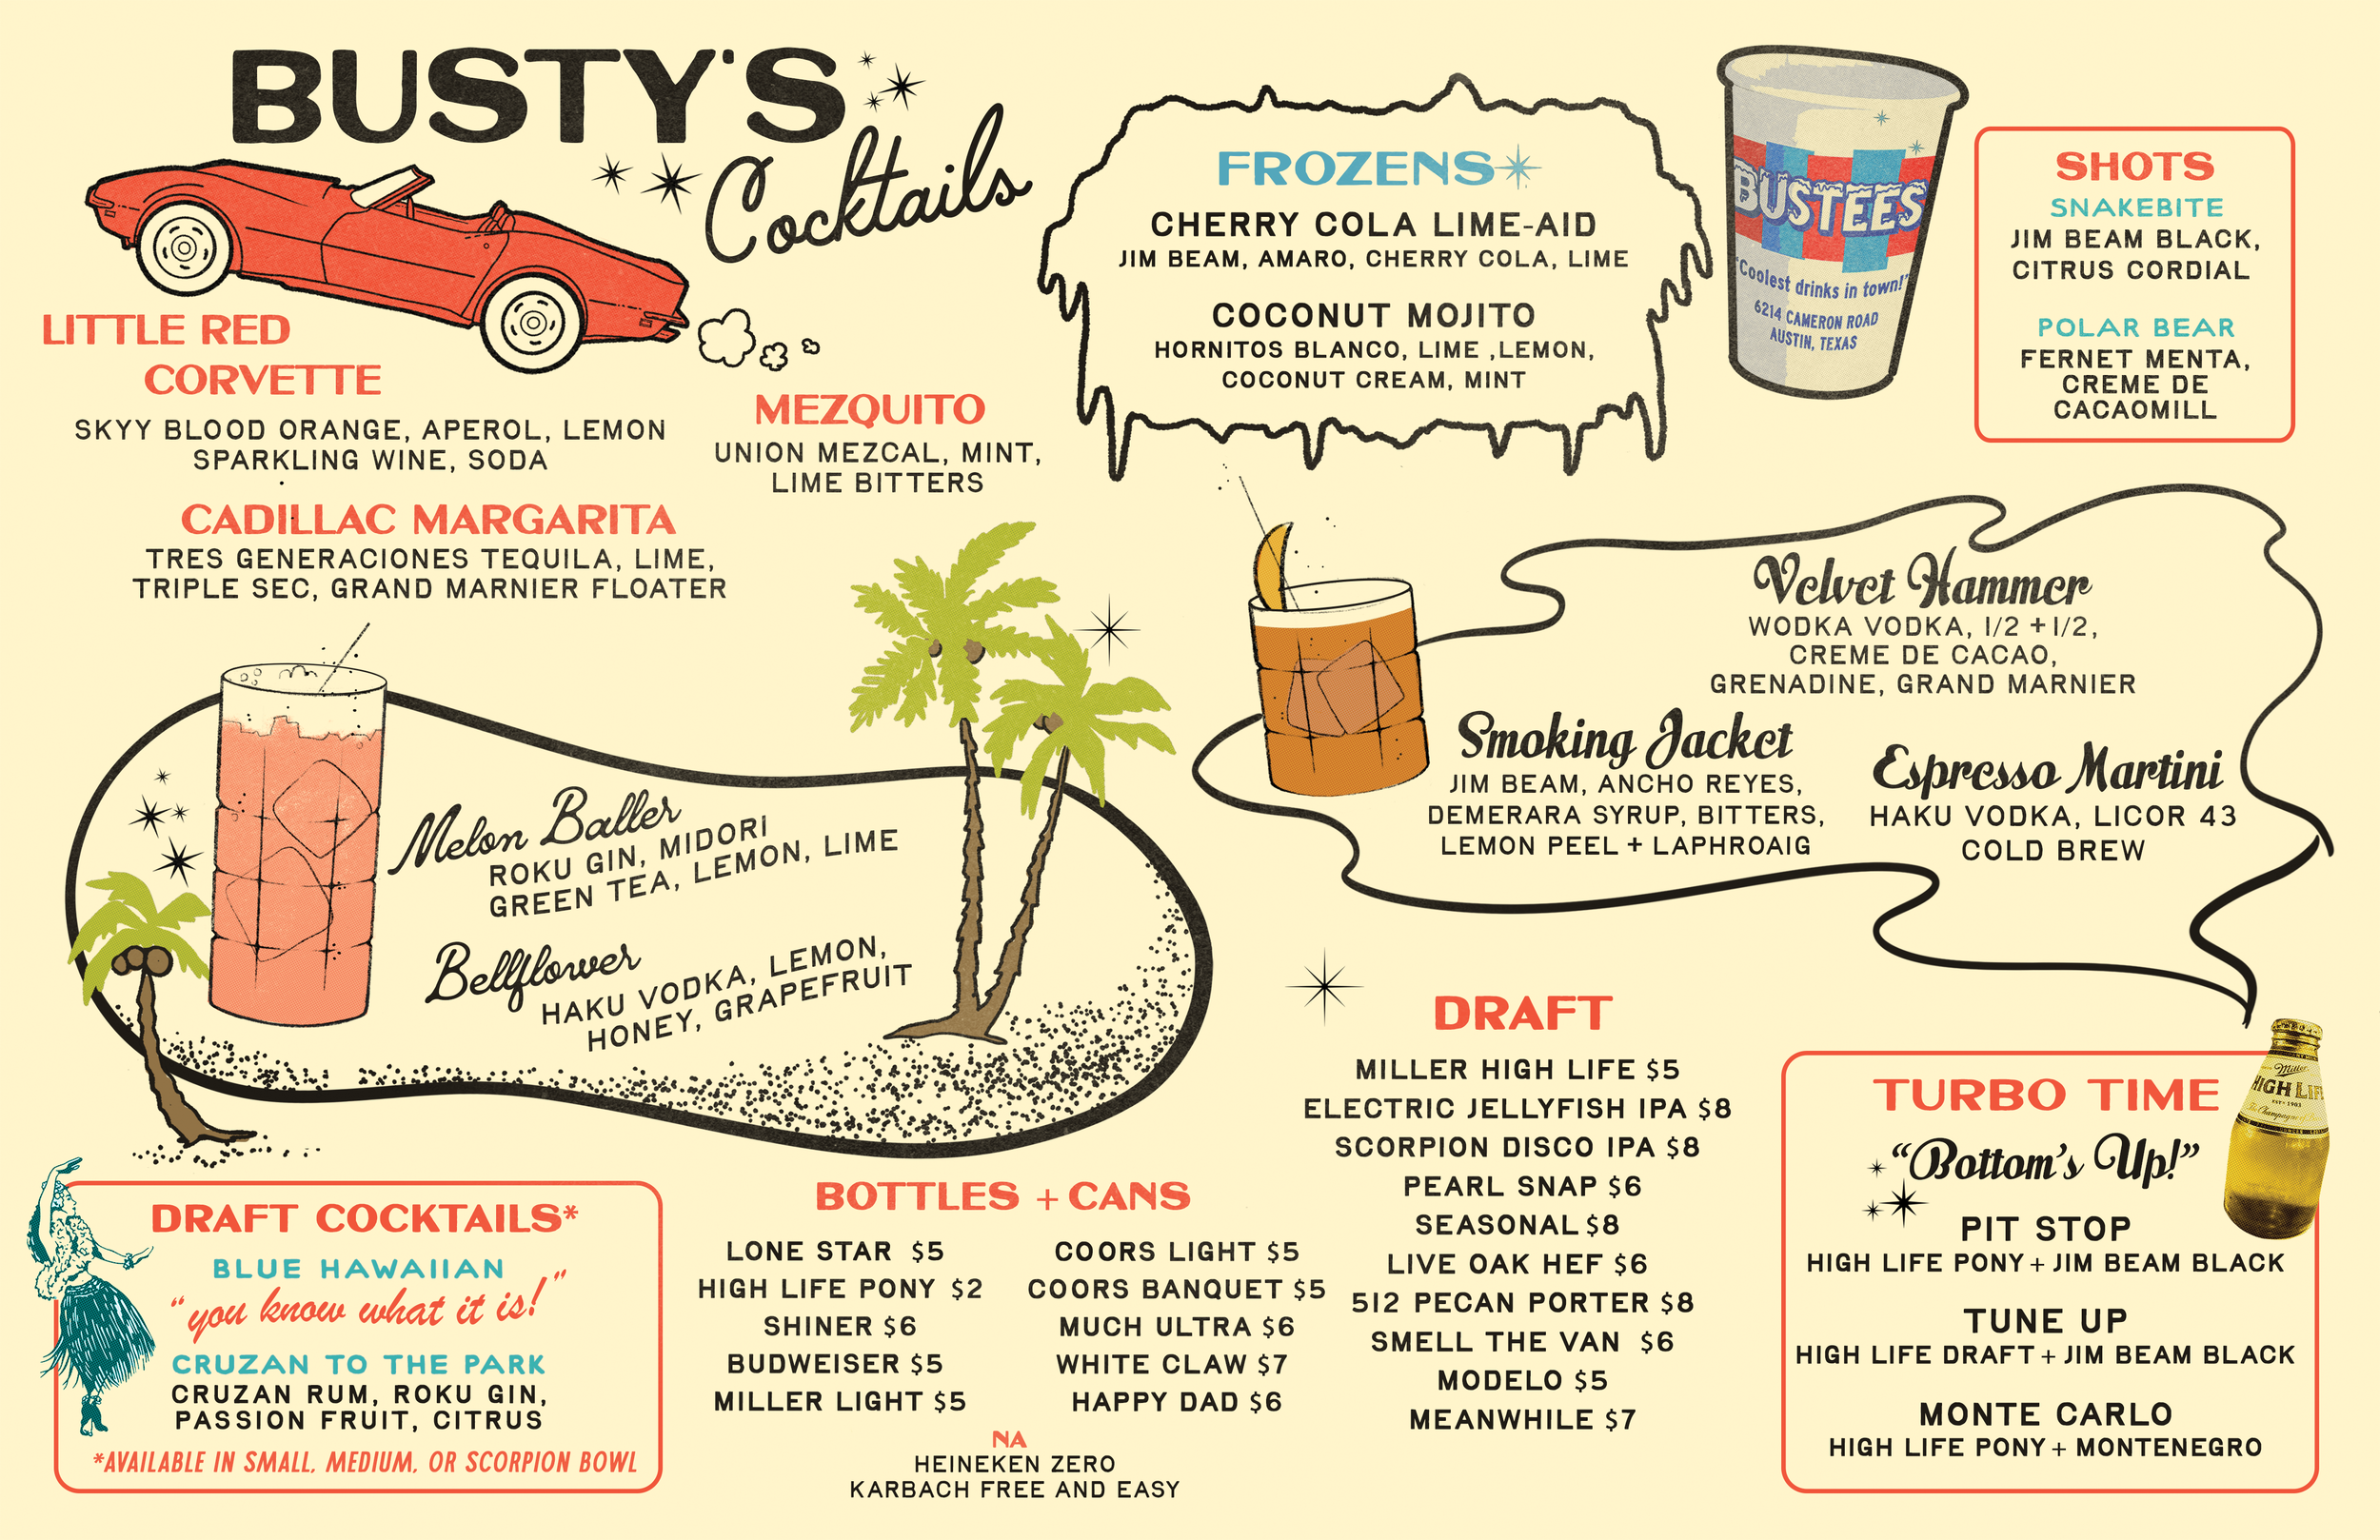 BUSTY'S
Cocktails
LITTLE RED
CORVETTE
SKYY BLOOD ORANGE, APEROL, LEMON
SPARKLING WINE, SODA
MEZQUITO
UNION MEZCAL, MINT,
LIME BITTERS
CADILLAC MARGARITA
TRES GENERACIONES TEQUILA, LIME,
TRIPLE SEC, GRAND MARNIER FLOATER
FROZENS
CHERRY COLA LIME-AID
JIM BEAM, AMARO, CHERRY COLA, LIME
COCONUT MOJITO
HORNITOS BLANCO, LIME ,LEMON,
COCONUT CREAM, MINT
BUSTEES
"Coolest drinks in town!"
6214 CAMERON ROAD
AUSTIN, TEXAS
SHOTS
SNAKEBITE
JIM BEAM BLACK,
CITRUS CORDIAL
POLAR BEAR
FERNET MENTA,
CREME DE
CACAOMILL
Velvet Hammer
WODKA VODKA, 1/2 +1/2,
CREME DE CACAO,
GRENADINE, GRAND MARNIER
Smoking Jacket
JIM BEAM, ANCHO REYES,
DEMERARA SYRUP, BITTERS,
LEMON PEEL + LAPHROAIG
Espresso Martini
HAKU VODKA, LICOR 43
COLD BREW
Melon Baller
ROKU GIN, MIDORI
GREEN TEA, LEMON, LIME
Bellflower
HAKU VODKA, LEMON,
HONEY, GRAPEFRUIT
DRAFT COCKTAILS*
BLUE HAWAIIAN
"you know what it is!"
CRUZAN TO THE PARK
CRUZAN RUM, ROKU GIN,
PASSION FRUIT, CITRUS
*AVAILABLE IN SMALL, MEDIUM, OR SCORPION BOWL
BOTTLES + CANS
LONE STAR $5
HIGH LIFE PONY $2
SHINER $6
BUDWEISER $5
MILLER LIGHT $5
COORS LIGHT $5
COORS BANQUET $5
MUCH ULTRA $6
WHITE CLAW $7
HAPPY DAD $6
NA
HEINEKEN ZERO
KARBACH FREE AND EASY
DRAFT
MILLER HIGH LIFE $5
ELECTRIC JELLYFISH IPA $8
SCORPION DISCO IPA $8
PEARL SNAP $6
SEASONAL $8
LIVE OAK HEF $6
512 PECAN PORTER $8
SMELL THE VAN $6
MODELO $5
MEANWHILE $7
TURBO TIME
"Bottom's Up!"
PIT STOP
HIGH LIFE PONY + JIM BEAM BLACK
TUNE UP
HIGH LIFE DRAFT + JIM BEAM BLACK
MONTE CARLO
HIGH LIFE PONY + MONTENEGRO
Miller
HIGH LIF
EST 1903